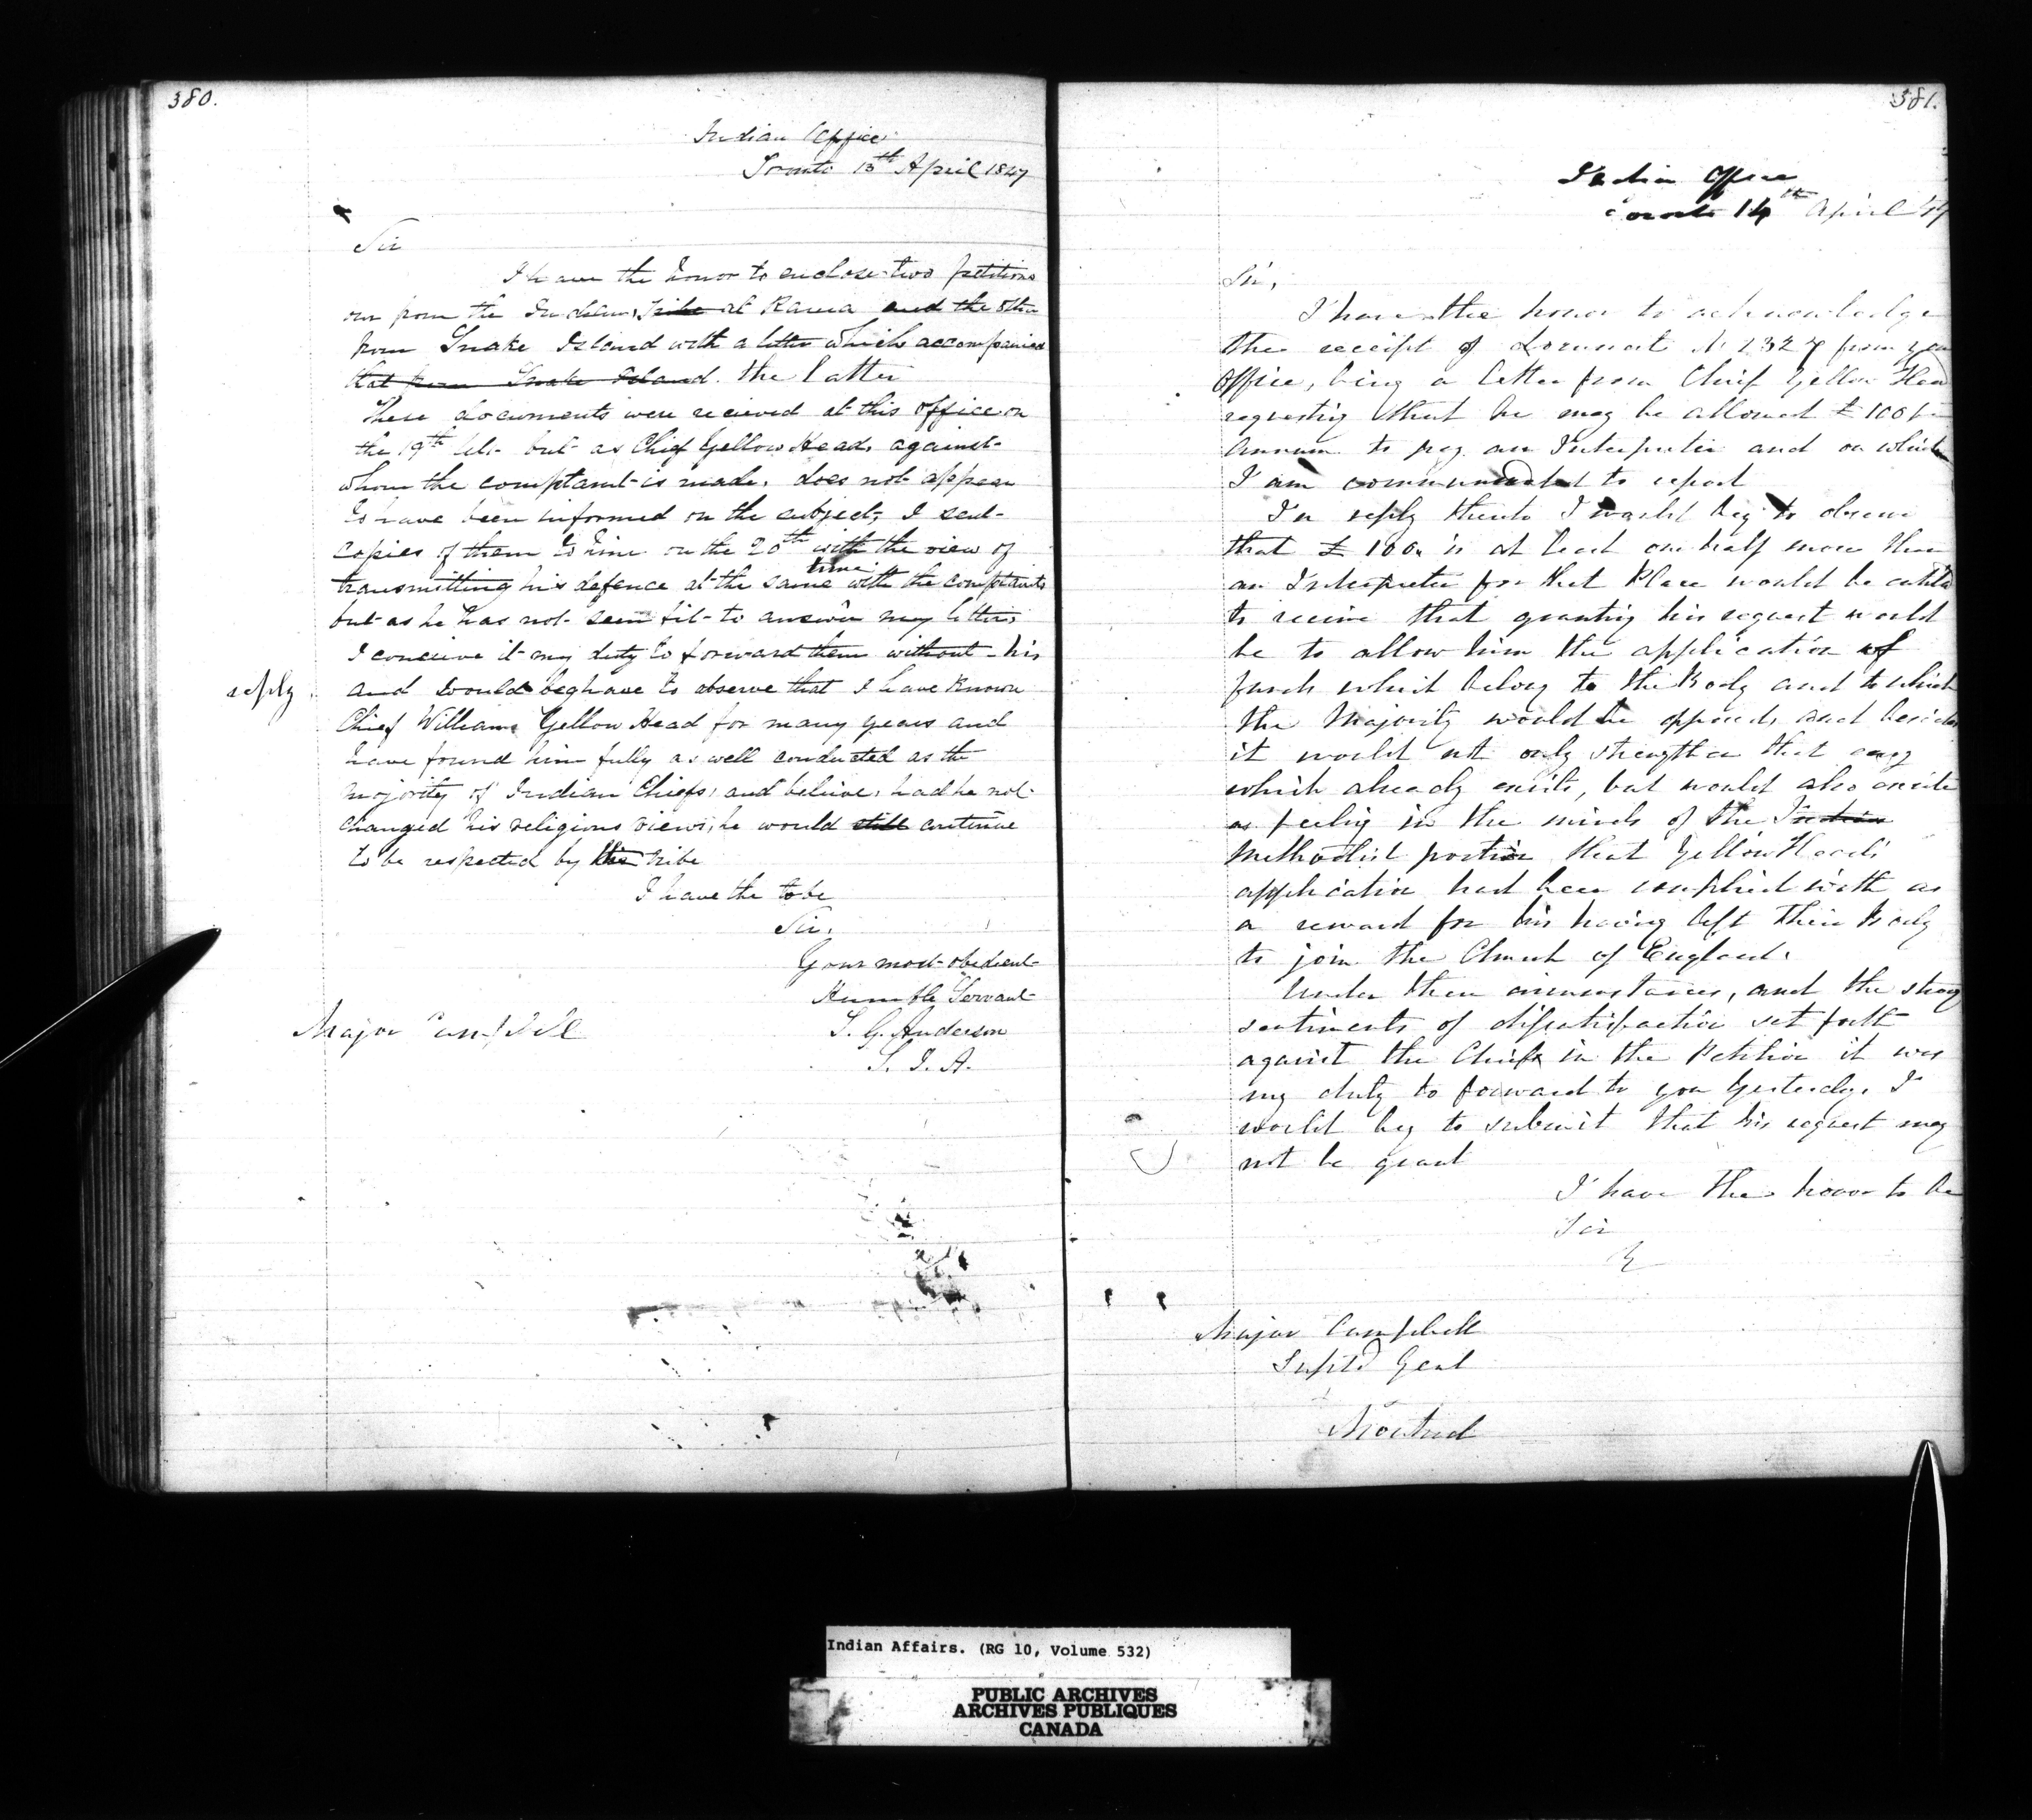 380.
Indian Office
Toronto 13th April 1847
Sir
I have the honor to enclose two petitions
one from the Indians, tribe at Rama and the other
from Snake Island with a letter which accompanied
that from Snake Island. the latter
These documents were recieved at this office on
the 19th but as Chief Yellow Head, against
whom the complaint is made, does not appear
to have been informed on the subject, I sent
copies of them to him on the 20th with the view of
transmitting his defence at the same time with the complaints
but as he has not seen fit to answer my letter,
I conceive it my duty to forward them without his
reply. and would beg leave to observe that I have known
Chief William Yellow Head for many years and
have found him fully as well conducted as the
majority of Indian Chiefs, and believe, had he not
changed his religious views, he would still continue
to be respected by his tribe
I have the to be
Sir,
Your most obedient
Humble Servant
T. G. Anderson
S. I. A.
Major Campbell
381.
Indian Office
Toronto 14th April 47
Sir,
I have the honor to acknowledge
the receipt of document No 1327 from your
Office, being a letter from Chief Yellow Head
requesting that he may be allowed £100 per
annum to pay an Interpreter and on which
I am commanded to report
In reply thereto I would beg to observe
that £100. is at least one half more than
an Interpreter for that Place would be entitled
to receive that granting his request would
be to allow him the application of
funds which belong to the Body and to which
the Majority would be opposed, and besides
it would not only strengthen that
which already exists, but would also excite
a feeling in the minds of the Indian
Methodist portion that Yellow Heads
application had been complied with as
a reward for his having left their Body
to join the Church of England.
Under these circumstances, and the strong
sentiments of dissatisfaction set forth
against the Chief in the Petition it was
my duty to forward to you Yesterday, I
would beg to submit that his request may
not be grant
I have the honor to be
Sir
Major Campbell
Supt. Genl
Montreal
Indian Affairs. (RG 10, Volume 532)
PUBLIC ARCHIVES
ARCHIVES PUBLIQUES
CANADA